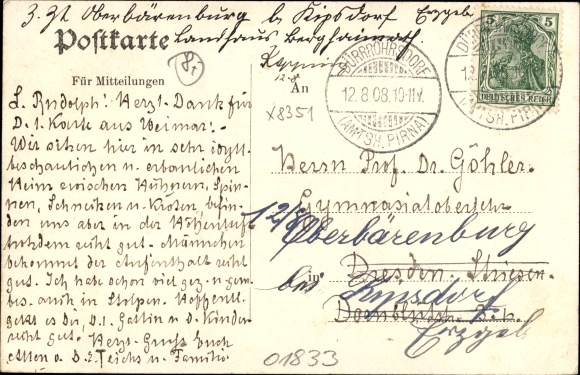 z. Zt. Oberbärenburg b. Kipsdorf Erzgeb.
Postkarte Landhaus Bergheimat.
Für Mitteilungen
An
x8351
DÜRRRÖHRSDORF
12.8.08.10-11V.
(AMTSH. PIRNA)
5 5
DEUTSCHES REICH
(AMTSH. PIRNA)
L. Rudolph! Herzl. Dank für
D. l. Karte aus Weimar!
Wir sitzen hier in sehr idyll.
beschaulichen u. erbaulichen
Heim zwischen Hühnern, Spin-
nen, Schnecken u. Kröten, befin-
den uns aber in der Höhenluft
trotzdem recht gut. Männchen
bekommt der Aufenthalt recht
gut. Ich habe schon viel gez. u. gem.
bes. auch in Stolpen. Hoffentl.
geht es Dir, D. l. Gattin u. D. Kindern
recht gut. Herzl. Gruß Euch
allen a. D. Teichs u. Familie
Herrn Prof. Dr. Göhler
Gymnasialoberlehrer
12/8
Oberbärenburg
in Dresden-Striesen
bei Kipsdorf
Erzgeb.
01833